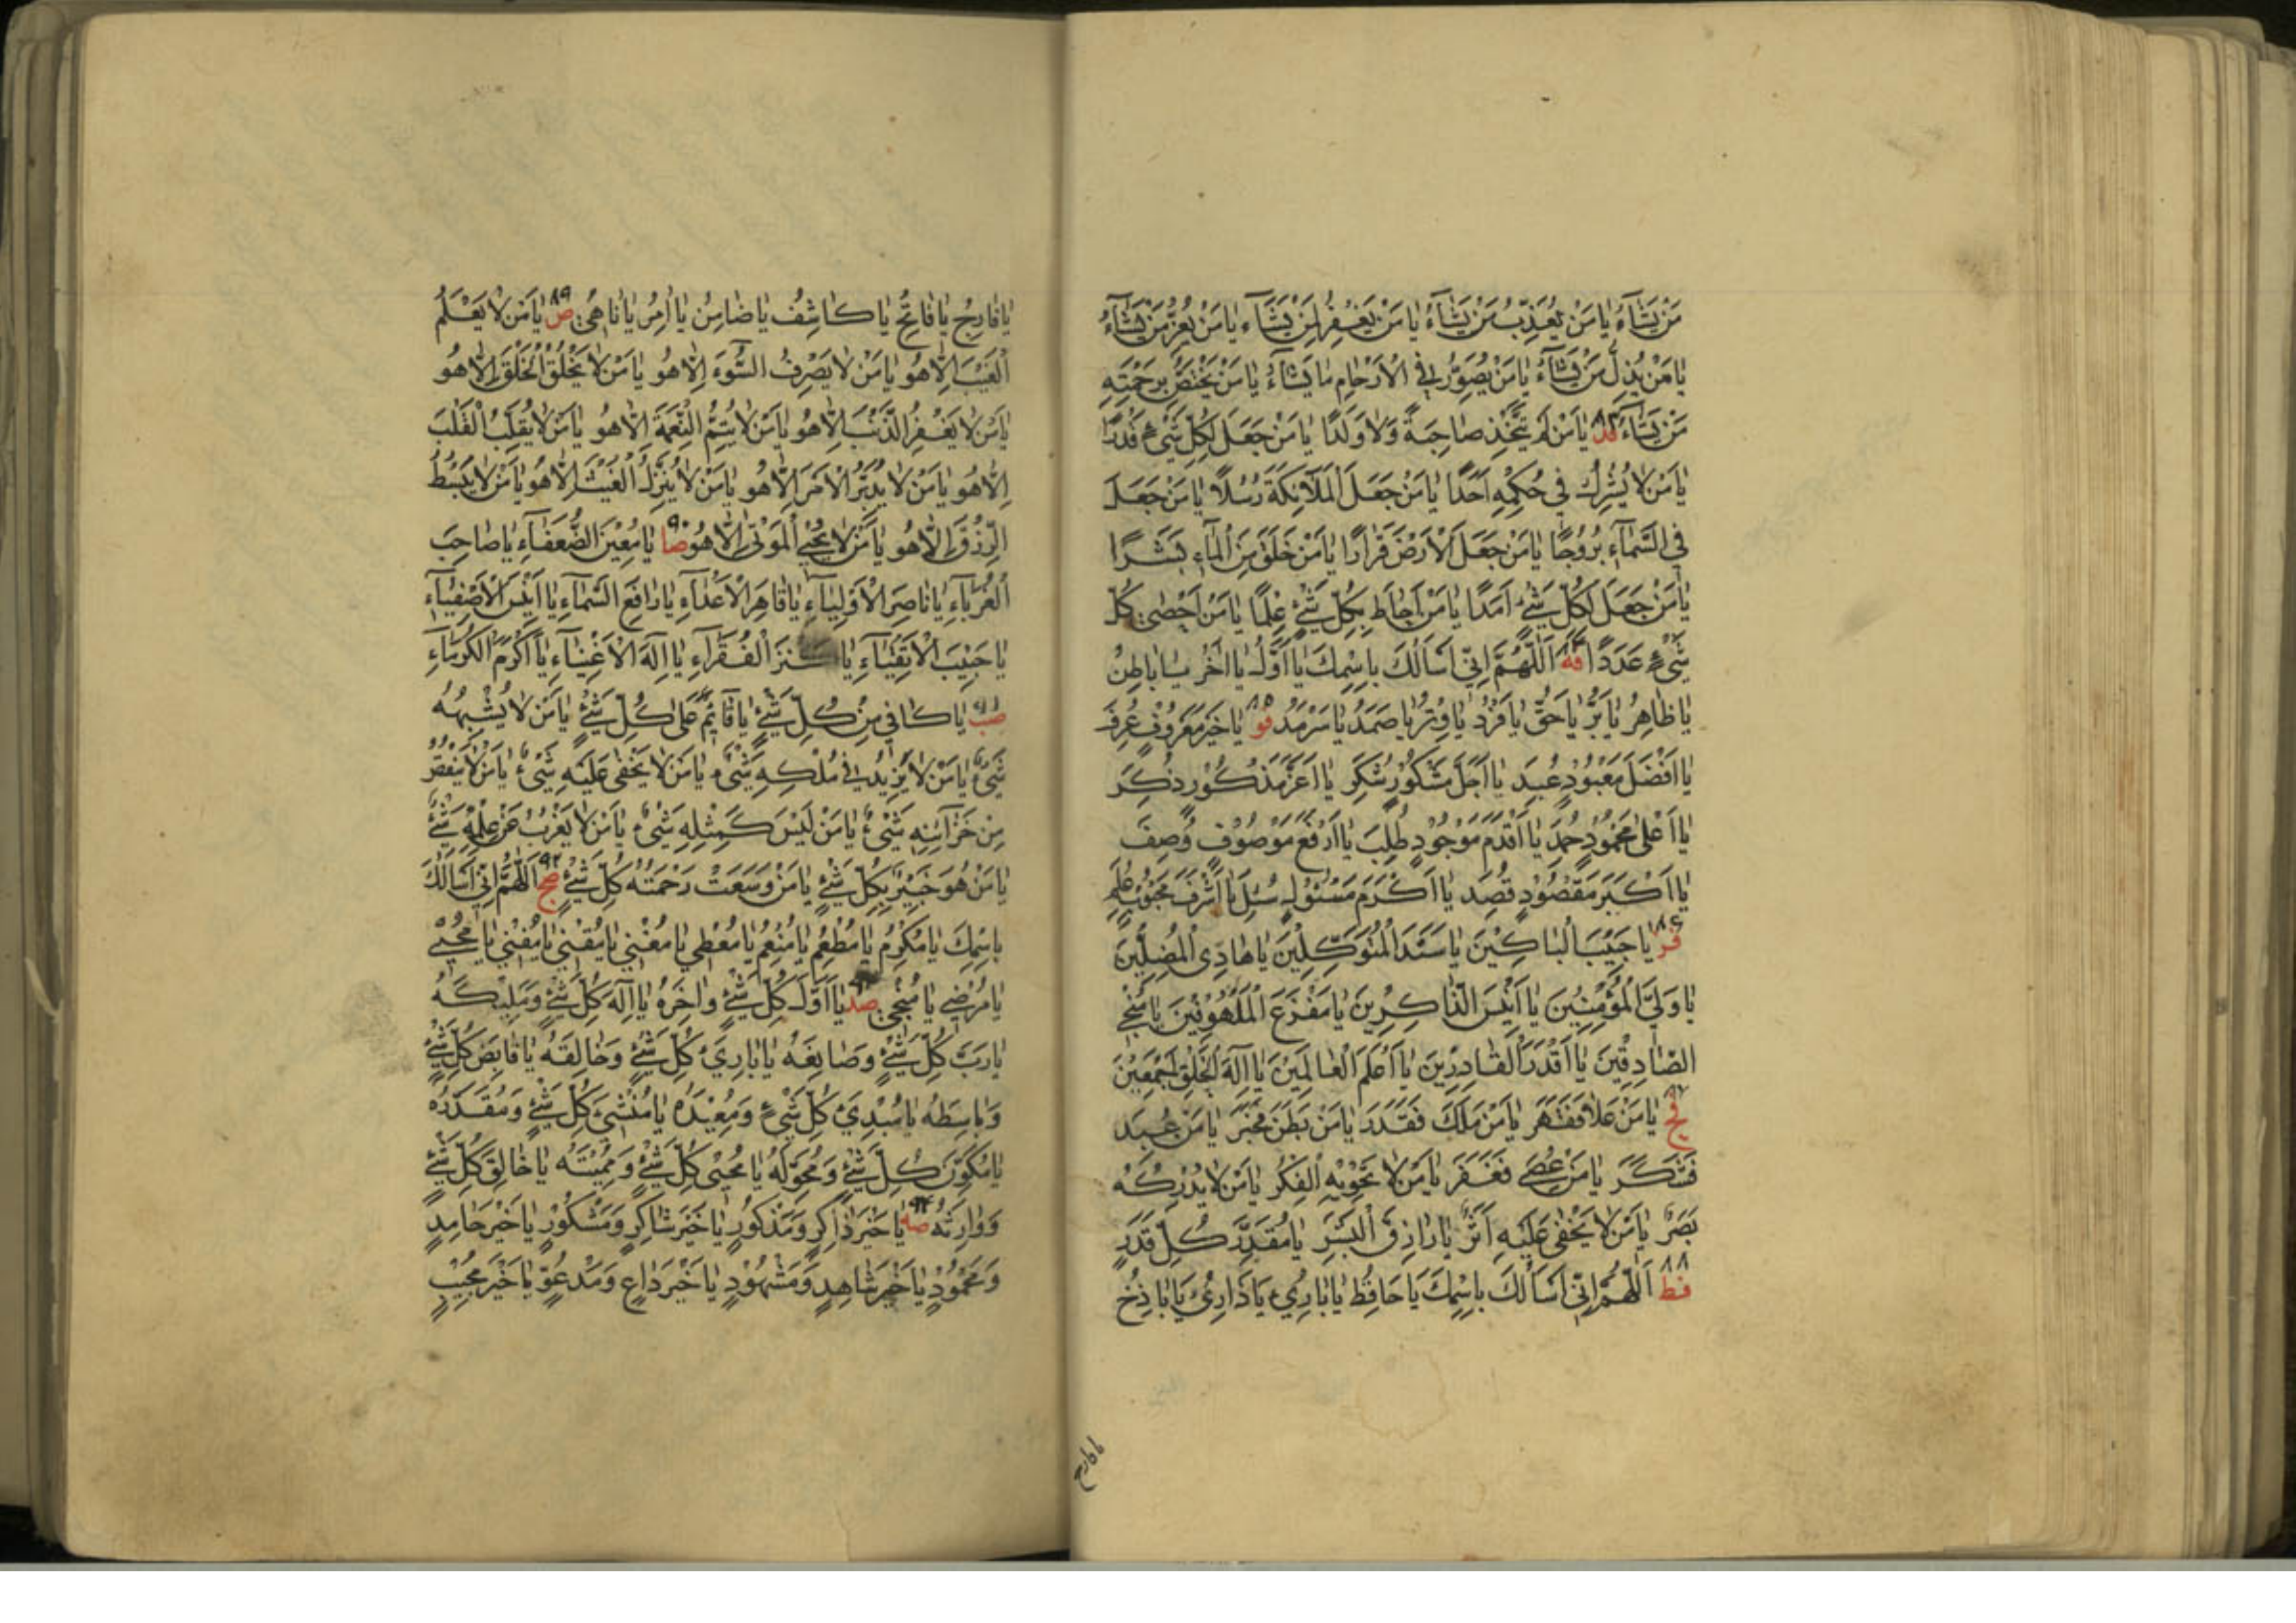 مَنْ يَشَاءُ يَا مَنْ يُعَذِّبُ مَنْ يَشَاءُ يَا مَنْ يَغْفِرُ لِمَنْ يَشَاءُ يَا مَنْ يُعِزُّ مَنْ يَشَاءُ
يَا مَنْ يُذِلُّ مَنْ يَشَاءُ يَا مَنْ يُصَوِّرُ فِي الْاَرْحَامِ مَا يَشَاءُ يَا مَنْ يَخْتَصُّ بِرَحْمَتِهِ
مَنْ يَشَاءُ فد ٨٣ يَا مَنْ لَمْ يَتَّخِذْ صَاحِبَةً وَلَا وَلَدًا يَا مَنْ جَعَلَ لِكُلِّ شَيْءٍ قَدْرًا
يَا مَنْ لَا يُشْرِكُ فِي حُكْمِهِ اَحَدًا يَا مَنْ جَعَلَ الْمَلَائِكَةَ رُسُلًا يَا مَنْ جَعَلَ
فِي السَّمَاءِ بُرُوجًا يَا مَنْ جَعَلَ الْاَرْضَ قَرَارًا يَا مَنْ خَلَقَ مِنَ الْمَاءِ بَشَرًا
يَا مَنْ جَعَلَ لِكُلِّ شَيْءٍ اَمَدًا يَا مَنْ اَحَاطَ بِكُلِّ شَيْءٍ عِلْمًا يَا مَنْ اَحْصٰى كُلَّ
شَيْءٍ عَدَدًا فه ٨٤ اَللّٰهُمَّ اِنِّي اَسْاَلُكَ بِاسْمِكَ يَا اَوَّلُ يَا اٰخِرُ يَا بَاطِنُ
يَا ظَاهِرُ يَا بَرُّ يَا حَقُّ يَا فَرْدُ يَا وِتْرُ يَا صَمَدُ يَا سَرْمَدُ فو ٨٥ يَا خَيْرَ مَعْرُوفٍ عُرِفَ
يَا اَفْضَلَ مَعْبُودٍ عُبِدَ يَا اَجَلَّ مَشْكُورٍ شُكِرَ يَا اَعَزَّ مَذْكُورٍ ذُكِرَ
يَا اَعْلٰى مَحْمُودٍ حُمِدَ يَا اَقْدَمَ مَوْجُودٍ طُلِبَ يَا اَرْفَعَ مَوْصُوفٍ وُصِفَ
يَا اَكْبَرَ مَقْصُودٍ قُصِدَ يَا اَكْرَمَ مَسْئُولٍ سُئِلَ يَا اَشْرَفَ مَحْبُوبٍ عُلِمَ
فز ٨٦ يَا حَبِيبَ الْبَاكِينَ يَا سَنَدَ الْمُتَوَكِّلِينَ يَا هَادِيَ الْمُضِلِّينَ
يَا وَلِيَّ الْمُؤْمِنِينَ يَا اَنِيسَ الذَّاكِرِينَ يَا مَفْزَعَ الْمَلْهُوفِينَ يَا مُنْجِيَ
الصَّادِقِينَ يَا اَقْدَرَ الْقَادِرِينَ يَا اَعْلَمَ الْعَالَمِينَ يَا اِلٰهَ الْخَلْقِ اَجْمَعِينَ
فح ٨٧ يَا مَنْ عَلَا فَقَهَرَ يَا مَنْ مَلَكَ فَقَدَرَ يَا مَنْ بَطَنَ فَخَبَرَ يَا مَنْ عُبِدَ
فَشَكَرَ يَا مَنْ عُصِيَ فَغَفَرَ يَا مَنْ لَا تَحْوِيهِ الْفِكَرُ يَا مَنْ لَا يُدْرِكُهُ
بَصَرٌ يَا مَنْ لَا يَخْفٰى عَلَيْهِ اَثَرٌ يَا رَازِقَ الْبَشَرِ يَا مُقَدِّرَ كُلِّ قَدَرٍ
فط ٨٨ اَللّٰهُمَّ اِنِّي اَسْاَلُكَ بِاسْمِكَ يَا حَافِظُ يَا بَارِئُ يَا ذَارِئُ يَا بَاذِخُ
يَا فَارِجُ يَا فَاتِحُ يَا كَاشِفُ يَا ضَامِنُ يَا اٰمِرُ يَا نَاهِي ص ٨٩ يَا مَنْ لَا يَعْلَمُ
الْغَيْبَ اِلَّا هُوَ يَا مَنْ لَا يَصْرِفُ السُّوءَ اِلَّا هُوَ يَا مَنْ لَا يَخْلُقُ الْخَلْقَ اِلَّا هُوَ
يَا مَنْ لَا يَغْفِرُ الذَّنْبَ اِلَّا هُوَ يَا مَنْ لَا يُتِمُّ النِّعْمَةَ اِلَّا هُوَ يَا مَنْ لَا يُقَلِّبُ الْقَلْبَ
اِلَّا هُوَ يَا مَنْ لَا يُدَبِّرُ الْاَمْرَ اِلَّا هُوَ يَا مَنْ لَا يُنَزِّلُ الْغَيْثَ اِلَّا هُوَ يَا مَنْ لَا يَبْسُطُ
الرِّزْقَ اِلَّا هُوَ يَا مَنْ لَا يُحْيِي الْمَوْتٰى اِلَّا هُوَ صا ٩٠ يَا مُعِينَ الضُّعَفَاءِ يَا صَاحِبَ
الْغُرَبَاءِ يَا نَاصِرَ الْاَوْلِيَاءِ يَا قَاهِرَ الْاَعْدَاءِ يَا رَافِعَ السَّمَاءِ يَا اَنِيسَ الْاَصْفِيَاءِ
يَا حَبِيبَ الْاَتْقِيَاءِ يَا كَنْزَ الْفُقَرَاءِ يَا اِلٰهَ الْاَغْنِيَاءِ يَا اَكْرَمَ الْكُرَمَاءِ
صب ٩١ يَا كَافِيَ مِنْ كُلِّ شَيْءٍ يَا قَائِمُ عَلٰى كُلِّ شَيْءٍ يَا مَنْ لَا يُشْبِهُهُ
شَيْءٌ يَا مَنْ لَا يَزِيدُ فِي مُلْكِهِ شَيْءٌ يَا مَنْ لَا يَخْفٰى عَلَيْهِ شَيْءٌ يَا مَنْ لَا يَنْقُصُ
مِنْ خَزَائِنِهِ شَيْءٌ يَا مَنْ لَيْسَ كَمِثْلِهِ شَيْءٌ يَا مَنْ لَا يَعْزُبُ عَنْ عِلْمِهِ شَيْءٌ
يَا مَنْ هُوَ خَبِيرٌ بِكُلِّ شَيْءٍ يَا مَنْ وَسِعَتْ رَحْمَتُهُ كُلَّ شَيْءٍ صج ٩٢ اَللّٰهُمَّ اِنِّي اَسْاَلُكَ
بِاسْمِكَ يَا مُكْرِمُ يَا مُطْعِمُ يَا مُنْعِمُ يَا مُعْطِي يَا مُغْنِي يَا مُقْنِي يَا مُفْنِي يَا مُحْيِي
يَا مُرْضِي يَا مُنْجِي صد يَا اَوَّلَ كُلِّ شَيْءٍ وَاٰخِرَهُ يَا اِلٰهَ كُلِّ شَيْءٍ وَمَلِيكَهُ
يَا رَبَّ كُلِّ شَيْءٍ وَصَانِعَهُ يَا بَارِئَ كُلِّ شَيْءٍ وَخَالِقَهُ يَا قَابِضَ كُلِّ شَيْءٍ
وَبَاسِطَهُ يَا مُبْدِئَ كُلِّ شَيْءٍ وَمُعِيدَهُ يَا مُنْشِئَ كُلِّ شَيْءٍ وَمُقَدِّرَهُ
يَا مُكَوِّنَ كُلِّ شَيْءٍ وَمُحَوِّلَهُ يَا مُحْيِيَ كُلِّ شَيْءٍ وَمُمِيتَهُ يَا خَالِقَ كُلِّ شَيْءٍ
وَوَارِثَهُ صه ٩٤ يَا خَيْرَ ذَاكِرٍ وَمَذْكُورٍ يَا خَيْرَ شَاكِرٍ وَمَشْكُورٍ يَا خَيْرَ حَامِدٍ
وَمَحْمُودٍ يَا خَيْرَ شَاهِدٍ وَمَشْهُودٍ يَا خَيْرَ دَاعٍ وَمَدْعُوٍّ يَا خَيْرَ مُجِيبٍ